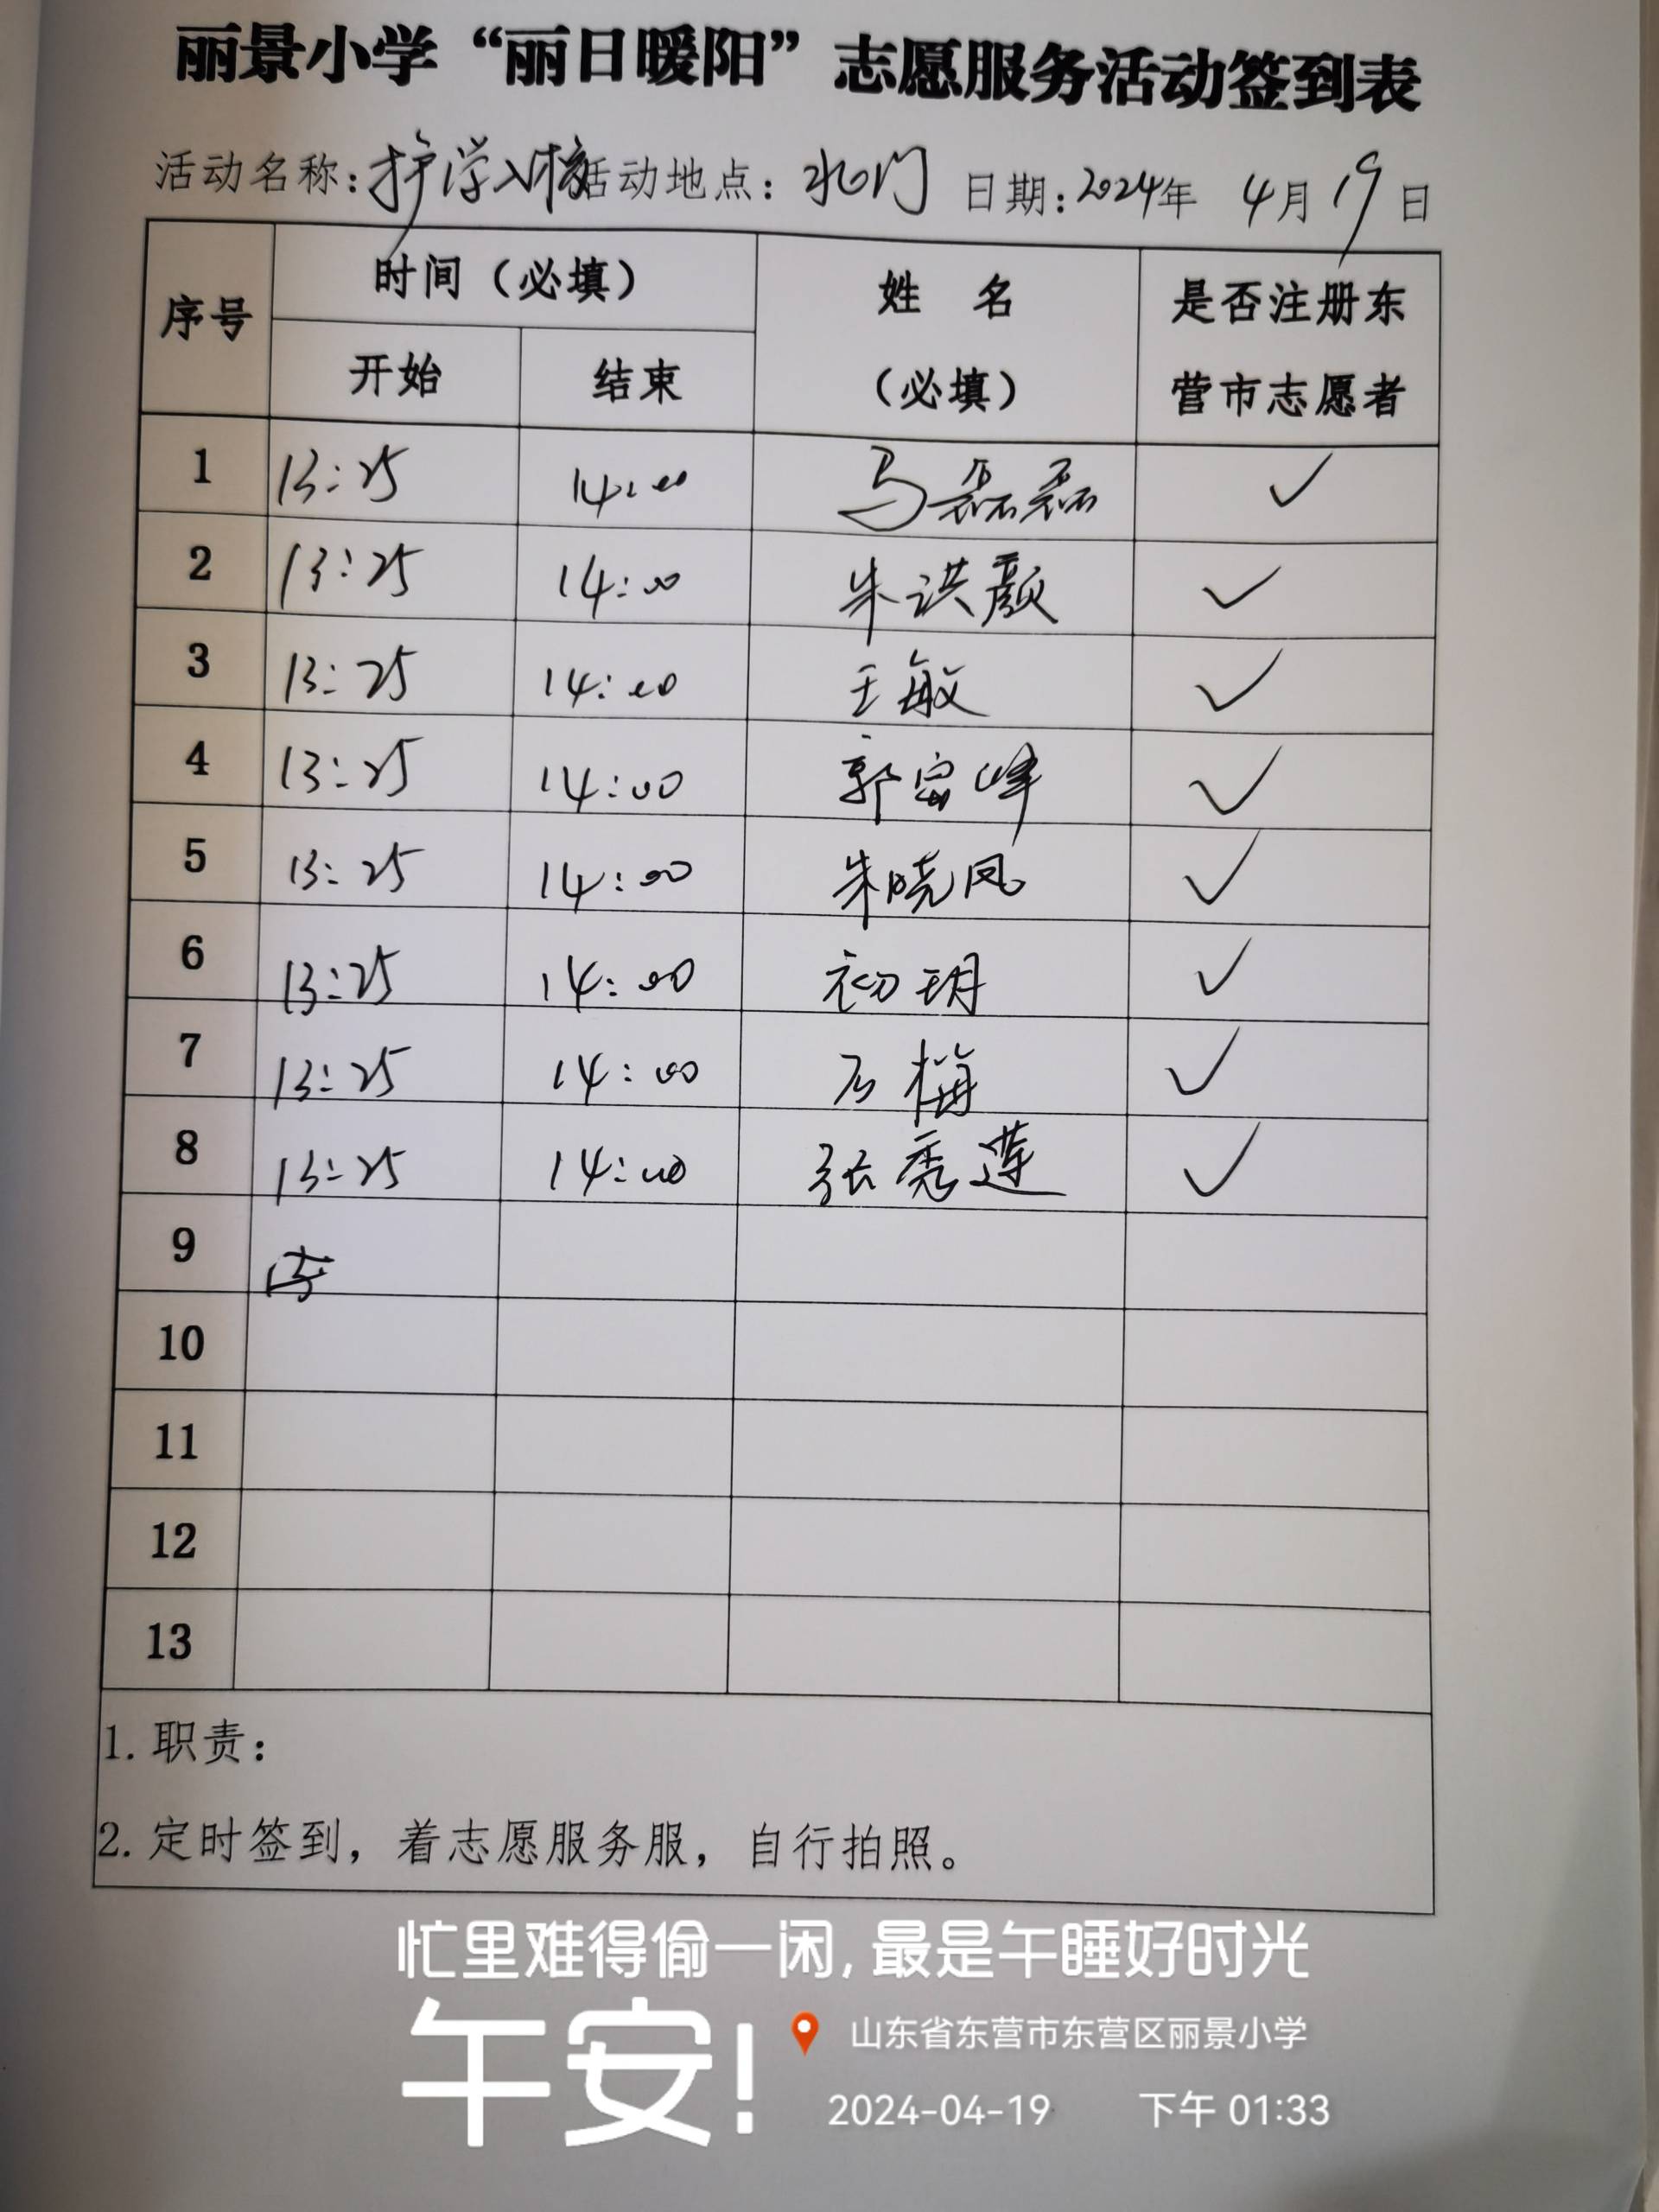 丽景小学“丽日暖阳”志愿服务活动签到表
活动名称:护学入校 活动地点:北门 日期:2024年 4月19日
序号 时间(必填) 姓 名 (必填) 是否注册东营市志愿者
开始 结束
1 13:25 14:00 马磊磊 ✓
2 13:25 14:00 朱洪颜 ✓
3 13:25 14:00 王敏 ✓
4 13:25 14:00 郭富峰 ✓
5 13:25 14:00 朱晓凤 ✓
6 13:25 14:00 初玥 ✓
7 13:25 14:00 石梅 ✓
8 13:25 14:00 张秀莲 ✓
9
10
11
12
13
1.职责:
2.定时签到,着志愿服务服,自行拍照。
忙里难得偷一闲,最是午睡好时光
午安!
山东省东营市东营区丽景小学
2024-04-19 下午 01:33